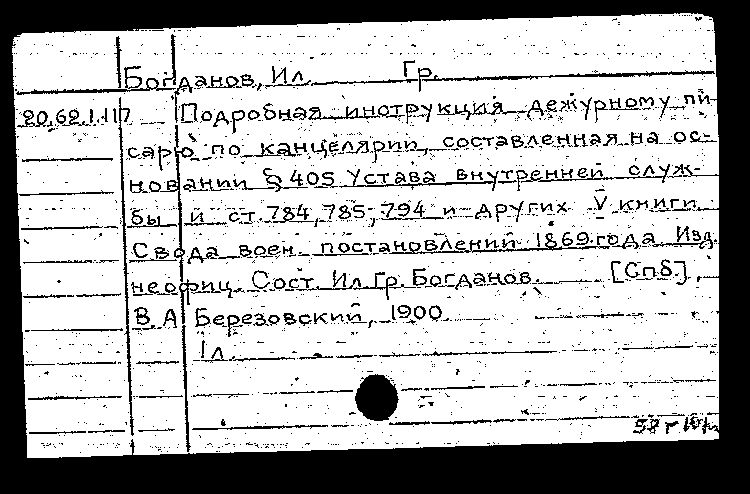 Богданов, Ил. Гр.
20.62.1.117 Подробная инструкция дежурному пи-
сарю по канцелярии, составленная на ос-
новании § 405 Устава внутренней служ-
бы и ст. 784, 785, 794 и других V книги
Свода воен. постановлений 1869 года Изд.
неофиц. Сост. Ил. Гр. Богданов. [Спб],
В. А Березовский, 1900.
1 л.